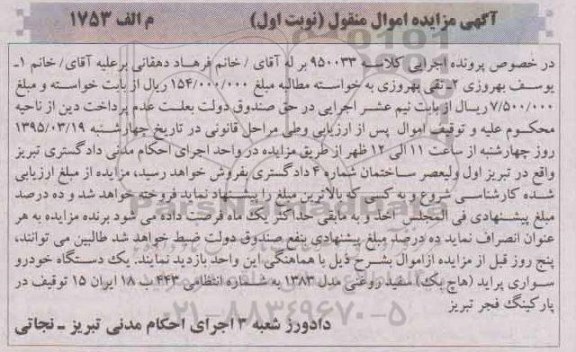 آگهی مزایده اموال منقول (نوبت اول) م الف ۱۷۵۳
در خصوص پرونده اجرایی کلاسه ۹۵۰۰۳۳ بر له آقای / خانم فرهاد دهقانی برعلیه آقای/ خانم ۱ـ
یوسف بهروزی ۲ـ تقی بهروزی به خواسته مطالبه مبلغ ۱۵۴/۰۰۰/۰۰۰ ریال از بابت خواسته و مبلغ
۷/۵۰۰/۰۰۰ ریال از بابت نیم عشر اجرایی در حق صندوق دولت بعلت عدم پرداخت دین از ناحیه
محکوم علیه و توقیف اموال پس از ارزیابی وطی مراحل قانونی در تاریخ چهارشنبه ۱۳۹۵/۰۳/۱۹
روز چهارشنبه از ساعت ۱۱ الی ۱۲ ظهر از طریق مزایده در واحد اجرای احکام مدنی دادگستری تبریز
واقع در تبریز اول ولیعصر ساختمان شماره ۴ دادگستری بفروش خواهد رسید، مزایده از مبلغ ارزیابی
شده کارشناسی شروع و به کسی که بالاترین مبلغ را پیشنهاد نماید فروخته خواهد شد و ده درصد
مبلغ پیشنهادی فی المجلس اخذ و به مابقی حداکثر یک ماه فرصت داده می شود برنده مزایده به هر
عنوان انصراف نماید ده درصد مبلغ پیشنهادی بنفع صندوق دولت ضبط خواهد شد طالبین می توانند،
پنج روز قبل از مزایده ازاموال بشرح ذیل با هماهنگی این واحد بازدید نمایند. یک دستگاه خودرو
سواری پراید (هاچ بک) سفید روغنی مدل ۱۳۸۳ به شماره انتظامی ۴۴۳ ب ۱۸ ایران ۱۵ توقیف در
پارکینگ فجر تبریز
دادورز شعبه ۳ اجرای احکام مدنی تبریز ـ نجاتی
۰۲۱-۸۸۳۴۹۶۷۰-۵